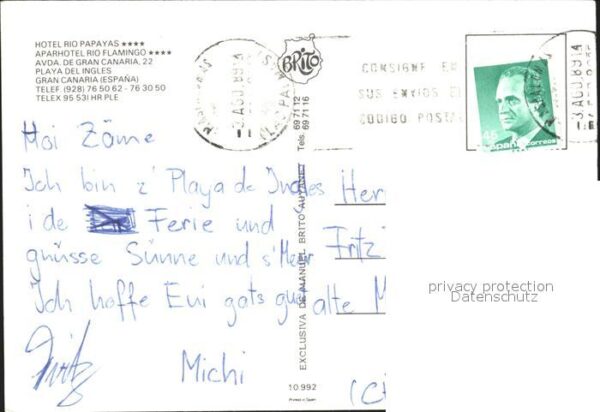 HOTEL RIO PAPAYAS ★★★★
APARHOTEL RIO FLAMINGO ★★★★
AVDA. DE GRAN CANARIA, 22
PLAYA DEL INGLES
GRAN CANARIA (ESPAÑA)
TELEF. (928) 76 50 62 - 76 30 50
TELEX 95 531 HR PLE
BRITO
Tels. 69 71 12
69 71 16
EXCLUSIVA DE MANUEL BRITO AUYANET
CONSIGNE EN
SUS ENVIOS EL
CODIGO POSTAL
3 AGO.89 14
45
España
correos
Hoi Zäme
Ich bin z' Playa de Ingles
i de Ferie und
gnüsse Sünne und s'Meer
Ich hoffe Eui gats guet
Fritz
Michi
Herr
Fritz
alte M
(C
10.992
Printed in Spain
privacy protection
Datenschutz